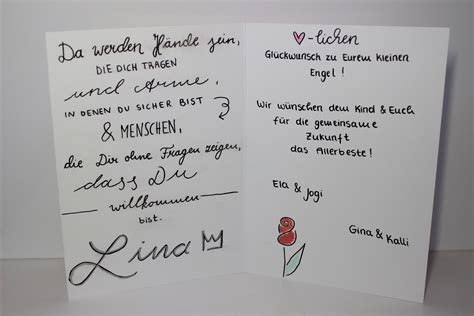 Da werden Hände sein,
DIE DICH TRAGEN
und Arme,
IN DENEN DU SICHER BIST
& MENSCHEN,
die Dir ohne Fragen zeigen,
dass Du
willkommen
bist.
Lina
♡-lichen
Glückwunsch zu Eurem kleinen
Engel!
Wir wünschen dem Kind & Euch
für die gemeinsame
Zukunft
das Allerbeste!
Ela & Jogi
Gina & Kalli